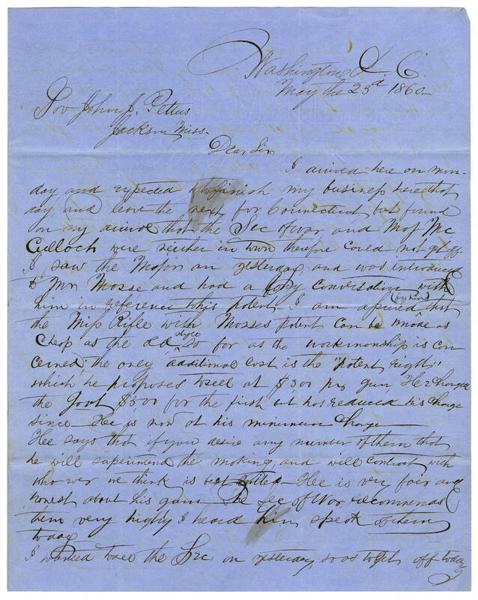 Washington D. C.
May the 23d 1860
Gov John J. Pettus
Jackson Miss.
Dear Sir
I arived here on mon-
day and expected to finish my business here that
day and leave the next for Connecticut but found
on my arival that the Sec of war and Maj Mc
Culloch were neither in town therefore could not get off
I saw the Major on yesterday and was introduced
to Mr Morse and had a long conversation with
him in reference to his patent. I am assured that
the Miss Rifle with Morses patent can be made as
cheap as the old style so far as the workmanship is con
cerned, the only additional cost is the "patent right"
which he proposes to sell at $3.00 per gun. He charged
the Govt $5.00 for the first but has reduced his charge
since He is now at his minimum charge
Hee says that if you desire any number of them that
he will superintend the making, and will contract with
who ever we think is best suited. Hee is very fair and
honest about his gun. The Sec of War recommends
them very highly I heard him speak of them
today
I wanted to see the Sec on yesterday so as to get off today